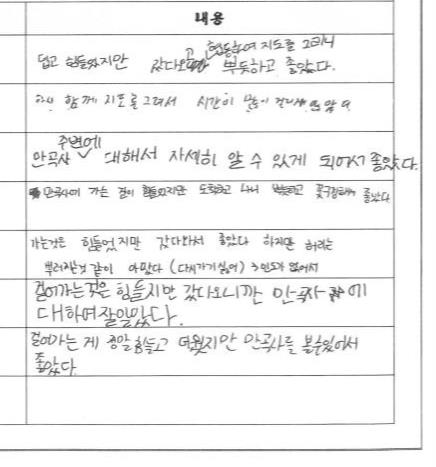 내용
덥고 힘들었지만 갔다오고 협동하여 지도를 그리니 뿌듯하고 좋았다.
함께 지도를 그려서 시간이 많이
안곡사 주변에 대해서 자세히 알 수 있게 되어서 좋았다.
만곡사에 가는 길이 힘들었지만 도착하고 나니 뿌듯하고 꽃구경해서 좋았다
가는것은 힘들었지만 갔다와서 좋았다 하지만 허리는
뿌러진것 같이 아팠다 (다시가기싫어)
걸어가는것은 힘들지만 갔다오니깐 만곡사에
대하여잘알았다.
걸어가는 게 정말 힘들고 더웠지만 만곡사를 볼수있어서
좋았다.